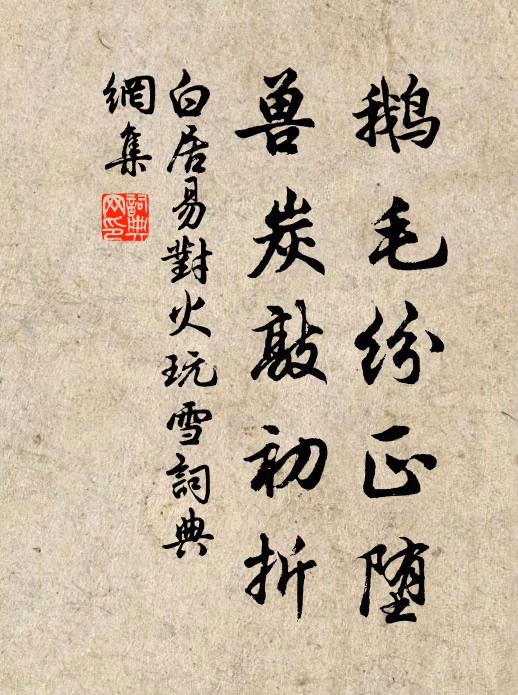 鹅毛纷正堕
兽炭敲初折
白居易對火玩雪詞典
網集
詞典
网印